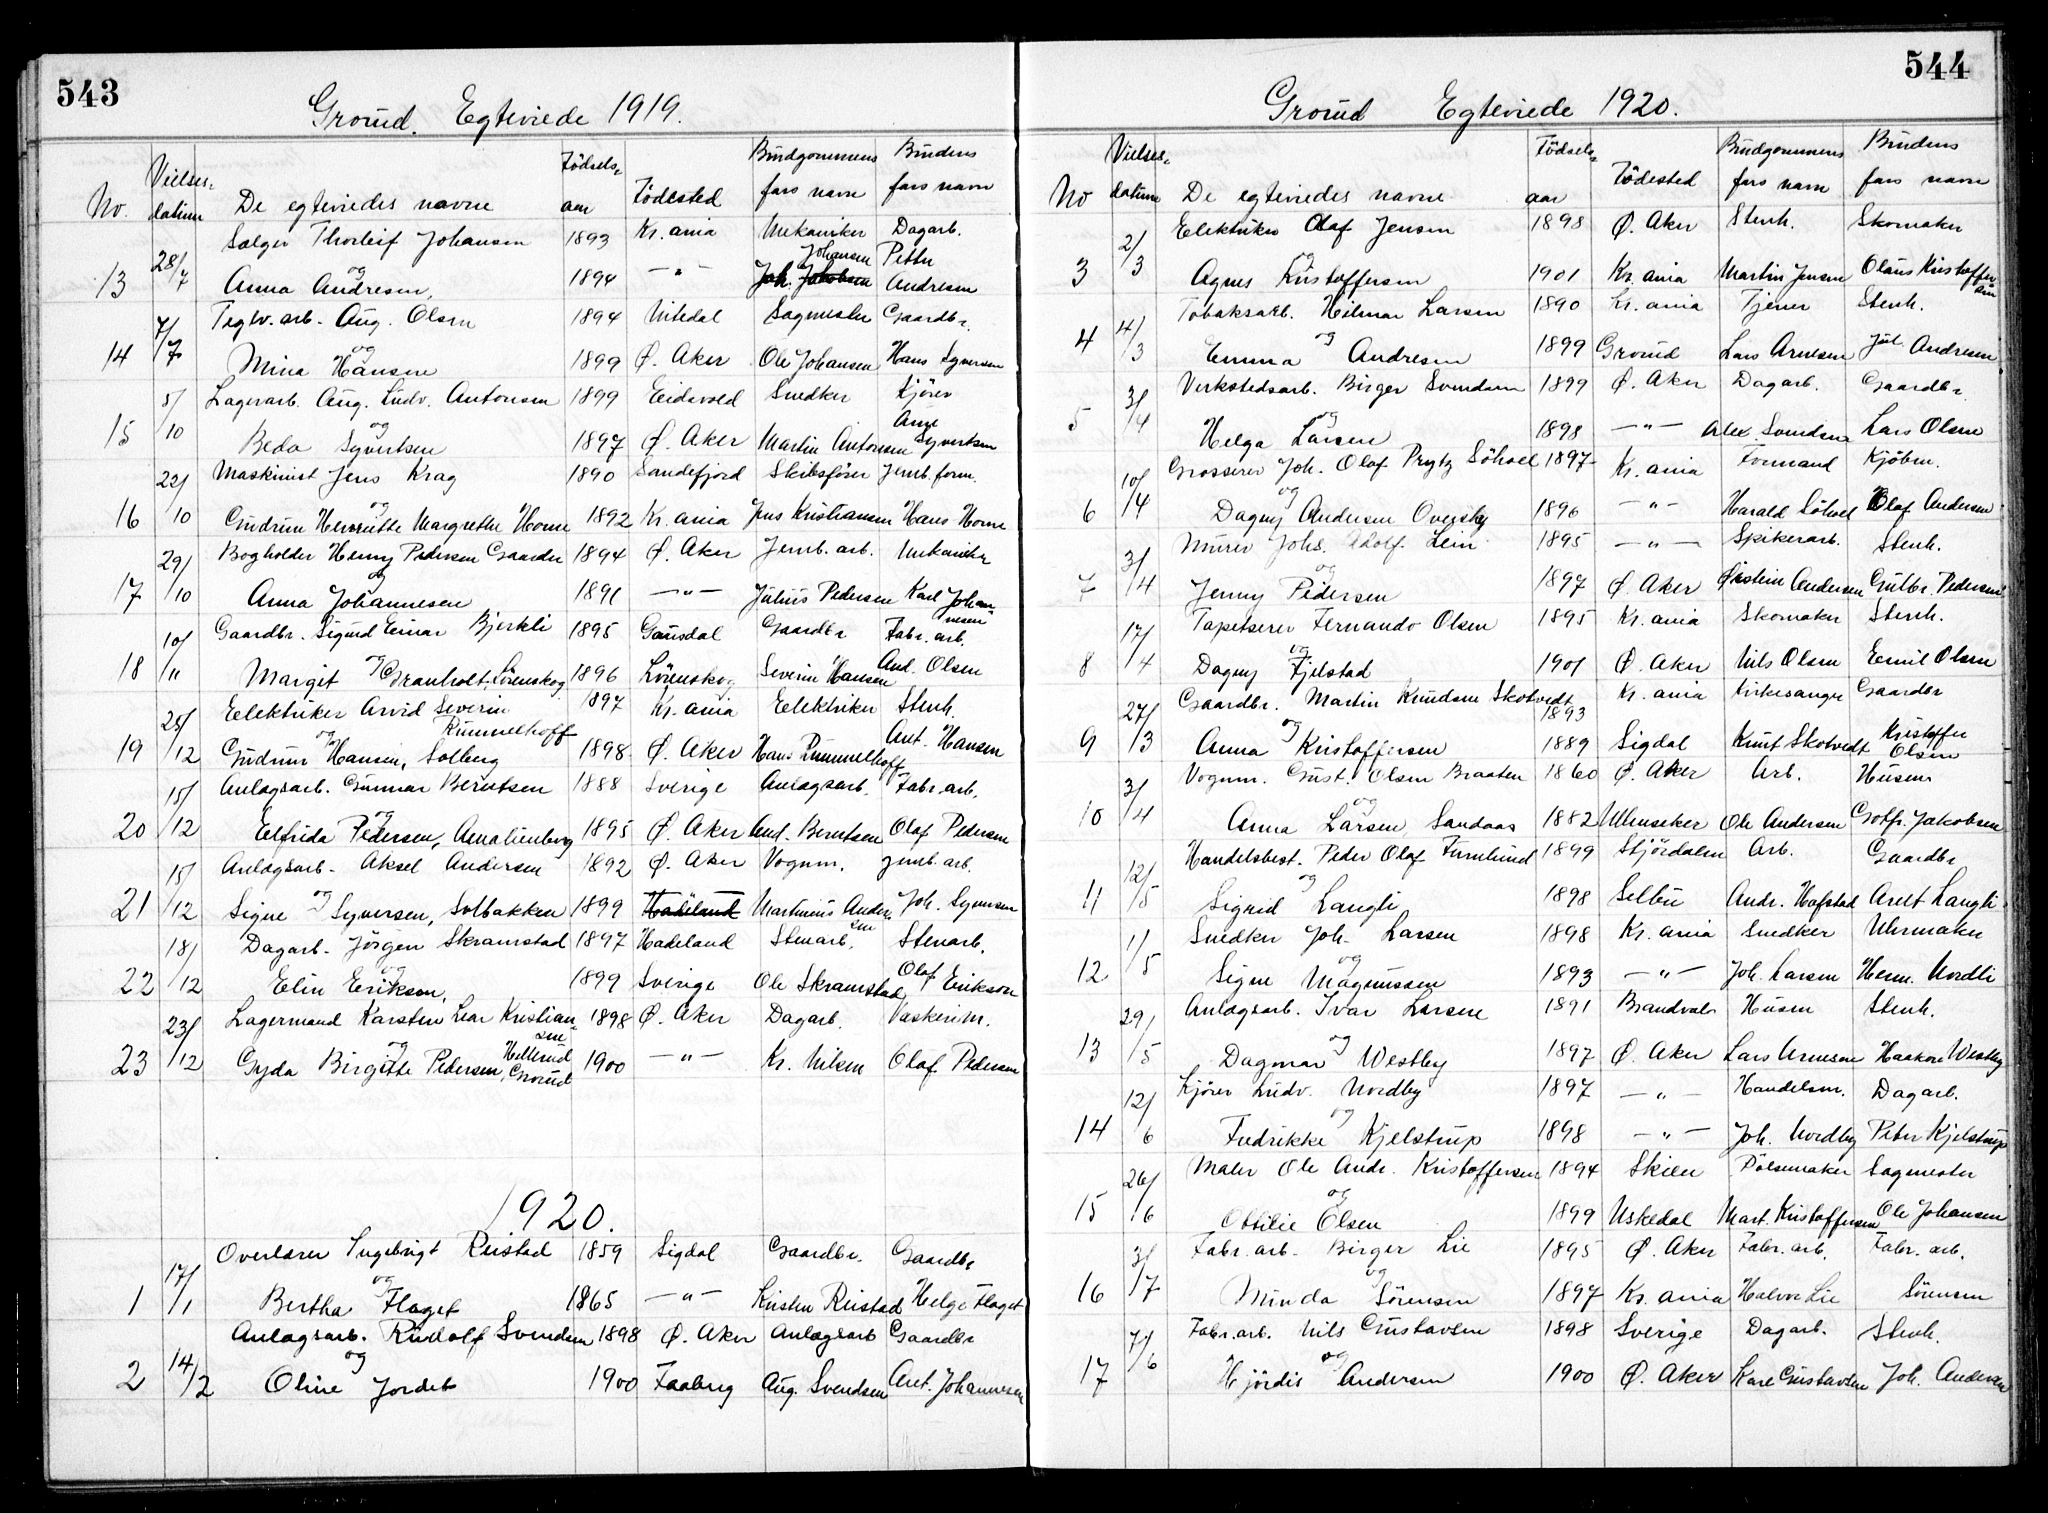 543
Grorud. Egteviede 1919.
No. Vielses- datum De egteviedes navne Fødsels- aar Fødested Brudgommens fars navn Brudens fars navn
Sælger Thorleif Johansen 1893 Kr.ania Mekaniker Dagarb.
13 28/7 og Johansen Petter
Anna Andresen, 1894 —"— Joh. Jakobsen Andresen
Teglv.arb. Aug. Olsen 1894 Nitedal Sagmester Gaardbr.
14 7/7 og
Mina Hansen 1899 Ø. Aker Ole Johansen Hans Syversen
Lagerarb. Aug. Ludv. Antonsen 1899 Eidsvold Snedker Kjører
15 5/10 og Arne
Beda Syvertsen 1897 Ø. Aker Martin Antonsen Syvertsen
Maskinist Jens Krag 1890 Sandefjord Skibsfører Jernb.form.
16 22/10 og
Gudrun Henriette Margrethe Horne 1892 Kr.ania Jens Kristiansen Hans Horne
Bogholder Henry Pedersen Gaarder 1894 Ø. Aker Jernb.arb. Mekaniker
17 29/10 og
Anna Johannesen 1891 —"— Julius Pedersen Karl Johannesen
Gaardbr. Sigurd Einar Bjerkli 1895 Gausdal Gaardbr. Fabr.arb.
18 10/11 Margit og Granholt, Lørenskog 1896 Lørenskog Severin Hansen And. Olsen
Elektriker Arvid Severin Rummelhoff 1897 Kr.ania Elektriker Stenh.
19 25/12 og
Gudrun Hansen, Solberg 1898 Ø. Aker Hans Rummelhoff Ant. Hansen
Anlægsarb. Gunnar Berntsen 1888 Sverige Anlægsarb. Fabr.arb.
20 15/12 og
Elfrida Pedersen, Amalienborg 1895 Ø. Aker And. Berntsen Olaf Pedersen
Anlægsarb. Aksel Andersen 1892 Ø. Aker Vognm. Jernb.arb.
21 15/12 Signe og Syversen, Solbakken 1899 Hadeland Martinius Andersen Joh. Syversen
Dagarb. Jørgen Skramstad 1897 Hadeland Stenarb. Stenarb.
22 18/12 og
Elin Eriksen, 1899 Sverige Ole Skramstad Olaf Erikson
Lagermand Karsten Lear Kristiansen 1898 Ø. Aker Dagarb. Vaskerim.
23 23/12 og
Gyda Birgitte Pedersen, Hellerud Grorud 1900 —"— Kr. Nilsen Olaf Pedersen
1920.
Overlærer Ingebrigt Reistad 1859 Sigdal Gaardbr. Gaardbr
1 17/1 og
Bertha Flaget 1865 —"— Kristen Reistad Helge Flaget
Anlægsarb. Rudolf Svendsen 1898 Ø. Aker Anlægsarb Gaardbr
2 14/2 og
Oline Jordet 1900 Faaberg Aug. Svendsen Ant. Johannesen
544
Grorud Egteviede 1920.
No Vielses- datum De egteviedes navne Fødsels- aar Fødested Brudgommens fars navn Brudens fars navn
Elektriker Olaf Jensen 1898 Ø. Aker Stenh. Skomaker
3 2/3 og
Agnes Kristoffersen 1901 Kr.ania Martin Jensen Olaus Kristoffersen
Tobaksarb. Hilmar Larsen 1890 Kr.ania Tjener Stenh.
4 4/3 og
Emma Andresen 1899 Grorud Lars Arnesen Jul. Andresen
Verkstedsarb. Birger Svendsen 1899 Ø. Aker Dagarb. Gaardbr
5 3/4 og
Helga Larsen 1898 —"— Alex Svendsen Lars Olsen
Grosserer Joh. Olaf Prytz Sôhoel 1897 Kr.ania Formand Kjøbm.
6 10/4 og
Dagny Andersen Oversby 1896 —"— Harald Sôhoel Olaf Andersen
Murer Johs. Adolf Lein 1895 —"— Spikerarb. Stenh.
7 3/4 og
Jenny Pedersen 1897 Ø. Aker Øistein Andersen Gulbr. Pedersen
Tapetserer Fernando Olsen 1895 Kr.ania Skomaker Stenh.
8 17/4 og
Dagny Fjelstad 1901 Ø. Aker Nils Olsen Emil Olsen
Gaardbr. Martin Knudsen Skotvedt 1893 Kr.ania Kirkesanger Gaardbr
9 27/3 og
Anna Kristoffersen 1889 Sigdal Knut Skotvedt Kristoffer Olsen
Vognm. Gust. Olsen Braaten 1860 Ø. Aker Arb. Husm
10 3/4 og
Anna Larsen Sandaas 1882 Ullensaker Ole Andersen Gotfr. Jakobsen
Handelsbest. Peder Olaf Furulund 1899 Stjørdalen Arb. Gaardbr
11 12/5 og
Sigrid Langli 1898 Selbu Andr. Hofstad Arnt Langli
Snedker Joh. Larsen 1898 Kr.ania Snedker Uhrmaker
12 1/5 og
Signe Magnussen 1893 —"— Joh. Larsen Herm. Nordli
Anlægsarb. Ivar Larsen 1891 Brandval Husm Stenh.
13 29/5 og
Dagmar Westby 1897 Ø. Aker Lars Arnesen Haakon Westby
Kjører Ludv. Nordby 1897 —"— Handelsm. Dagarb.
14 12/6 og
Fredrikke Kjelstrup 1898 —"— Joh. Nordby Peter Kjelstrup
Maler Ole Andr. Kristoffersen 1894 Skien Pølsemaker Sagmester
15 26/6 og
Ottilie Olsen 1899 Uskedal Mart. Kristoffersen Ole Johansen
Fabr.arb. Birger Lie 1895 Ø. Aker Fabr.arb. Fabr.arb.
16 3/7 og
Minda Sørensen 1897 Kr.ania Halvor Lie Sørensen
Fabr.arb. Nils Gustavsen 1898 Sverige Dagarb. Stenh.
17 7/6 og
Hjørdis Andersen 1900 Ø. Aker Karl Gustavsen Joh. Andersen